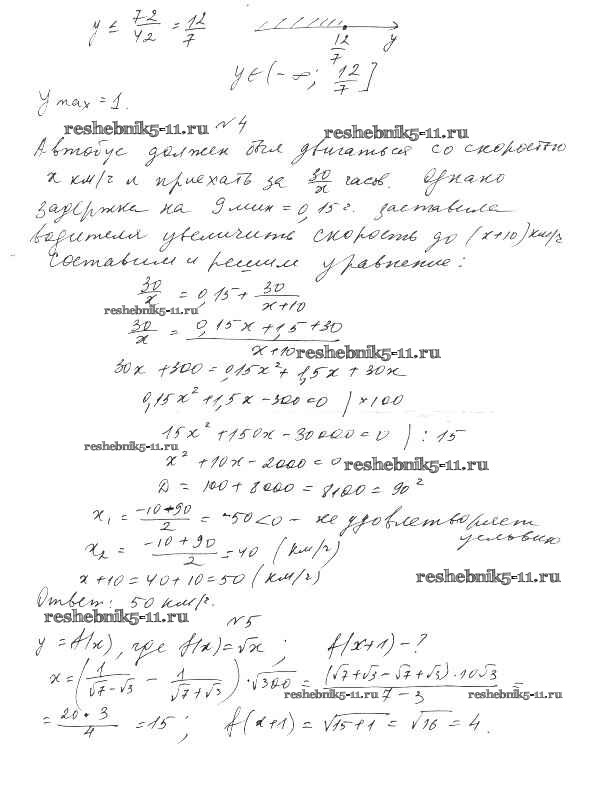 y ≤ 72/42 = 12/7
12/7 y
y ∈ (-∞; 12/7]
y max = 1.
reshebnik5-11.ru №4 reshebnik5-11.ru
Автобус должен был двигаться со скоростью
x км/ч и приехать за 30/x часов. Однако
задержка на 9 мин = 0,15 ч. заставила
водителя увеличить скорость до (x+10) км/ч
Составим и решим уравнение:
30/x = 0,15 + 30/(x+10)
reshebnik5-11.ru
30/x = (0,15x + 1,5 + 30)/(x+10)
reshebnik5-11.ru
30x + 300 = 0,15x² + 1,5x + 30x
0,15x² + 1,5x - 300 = 0 ) × 100
15x² + 150x - 30000 = 0 ) : 15
reshebnik5-11.ru
x² + 10x - 2000 = 0 reshebnik5-11.ru
D = 100 + 8000 = 8100 = 90²
x₁ = (-10-90)/2 = -50 < 0 - не удовлетворяет
условию
x₂ = (-10+90)/2 = 40 (км/ч)
x + 10 = 40 + 10 = 50 (км/ч) reshebnik5-11.ru
Ответ: 50 км/ч.
reshebnik5-11.ru №5
y = f(x), где f(x) = √x ; f(x+1) - ?
x = (1/(√7-√3) - 1/(√7+√3)) · √300 = ((√7+√3-√7+√3) · 10√3)/(7-3) =
reshebnik5-11.ru reshebnik5-11.ru
= (20 · 3)/4 = 15 ; f(x+1) = √(15+1) = √16 = 4.